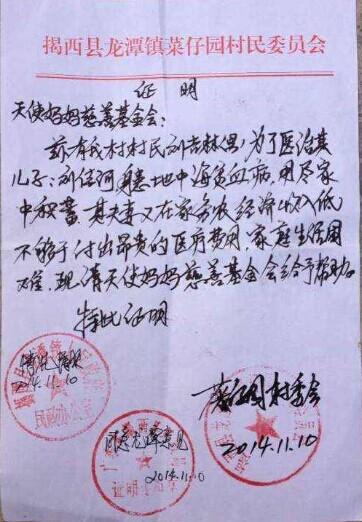 揭西县龙潭镇菜仔园村民委员会
证 明
天使妈妈慈善基金会:
兹有我村村民刘吉林偶,为了医治其
儿子:刘任河患地中海贫血病,用尽家
中积蓄,其夫妻又在家务农经济收入低
不够于付出昂贵的医疗费用,家庭生活困
难,现请天使妈妈慈善基金会给予帮助。
特此证明
情况属实
2014.11.10
民政办公室
菜仔园村委会
2014.11.10
同意龙潭意见
2014.11.10